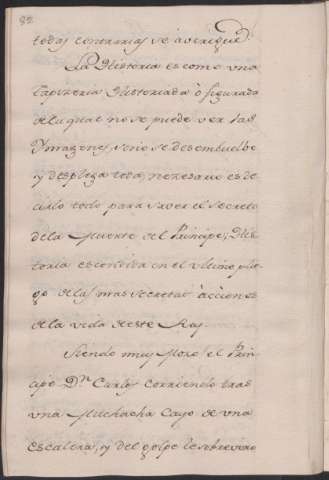 82
todas contrarias se averiguò.
La Historia es como una
tapizeria Historiada ò figurada
de la qual no se puede ver las
Ymagenes, si no se desembuelbe
y desplega toda, necesario es de
cirlo todo para saver el secreto
de la Muerte del Principe, His
toria escondida en el ultimo plie
go de las mas secretas àcciones
de la vida de este Rey.
Siendo muy Mozo el Prin
cipe Dn. Carlos corriendo tras
una Muchacha Cayo de una
Escalera, y del golpe le sobrevino